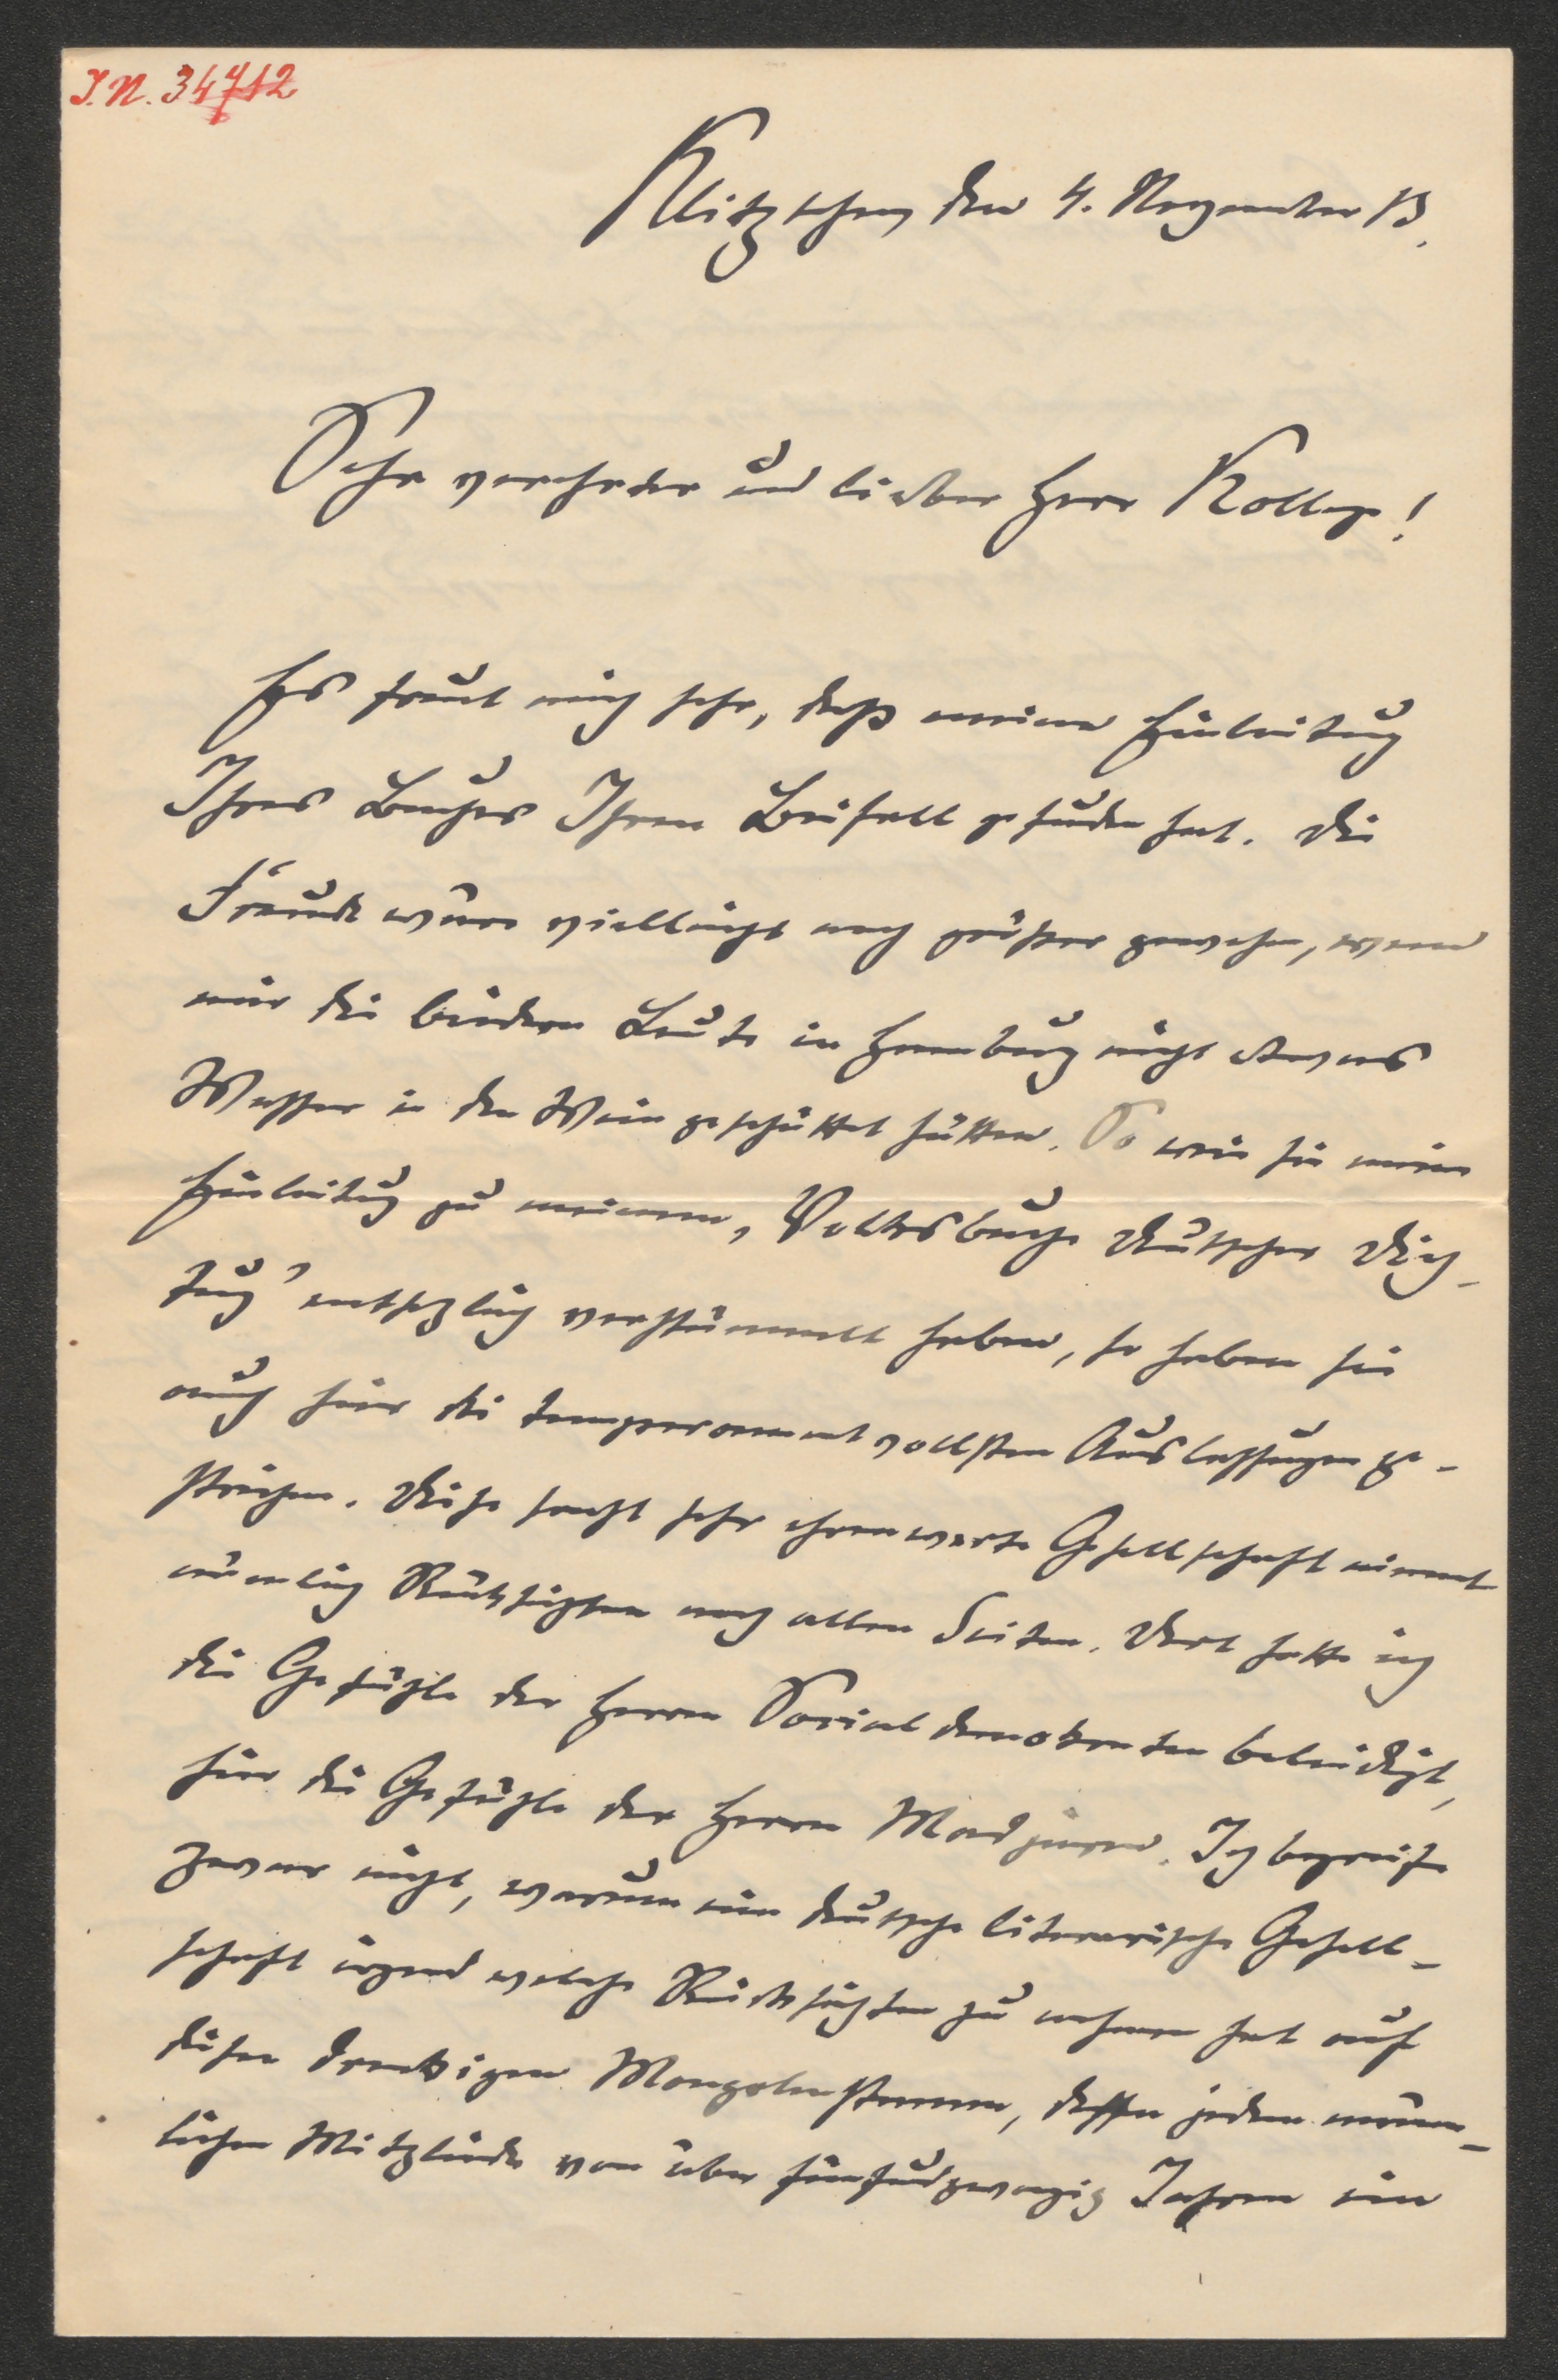 J.N. 34712
Klitzschen, den 4. November 13.
Sehr verehrter und lieber Herr Kollege!
Es freut mich sehr, daß meine Einleitung
Ihres Buches Ihren Beifall gefunden hat. Die
Freude wäre vielleicht noch größer gewesen, wenn
mir die biederen Leute in Hamburg nicht etwas
Wasser in den Wein geschüttet hätten. So wie sie meine
Einleitung zu meinem „Volksbuche deutscher Dich-
tung" entsetzlich verstümmelt haben, so haben sie
auch hier die temperamentvollsten Auslassungen ge-
strichen. Diese sonst sehr ehrenwerte Gesellschaft nimmt
nämlich Rücksichten nach allen Seiten. Dort hatte ich
die Gefühle der Herren Socialdemokraten beleidigt,
hier die Gefühle der Herren Madjaren. Ich begreife
zwar nicht, warum eine deutsche literarische Gesell-
schaft irgend welche Rücksichten zu nehmen hat auf
diesen dreckigen Mongolenstamm, dessen jedem männ-
lichen Mitgliede von über fünfundzwanzig Jahren ein